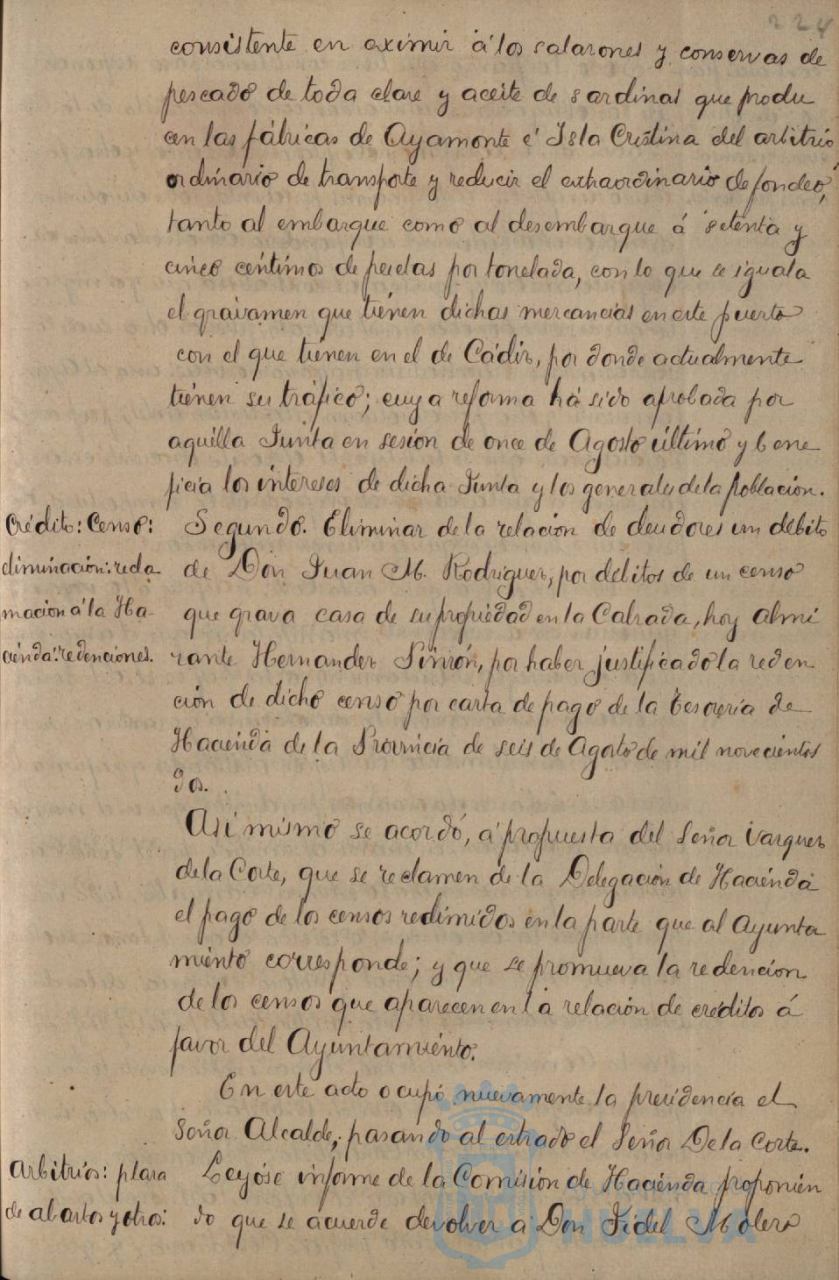 224
consistente en eximir á los salazones y conservas de
pescado de toda clase y aceite de sardinas que produ
cen las fábricas de Ayamonte é Isla Cristina del arbitrio
ordinario de transporte y reducir el extraordinario de fondeo,
tanto al embarque como al desembarque á setenta y
cinco centimos de pesetas por tonelada, con lo que se iguala
el gravamen que tienen dichas mercancias en este puerto
con el que tienen en el de Cádiz, por donde actualmente
tienen su tráfico; cuya reforma há sido aprobada por
aquella Junta en sesion de once de Agosto último y bene
ficia los intereses de dicha Junta y los generales de la población.
Crédito: Censo:
eliminación: recla
macion á la Ha-
cienda: redenciones.
Segundo. Eliminar de la relación de deudores un débito
de Don Juan M. Rodriguez, por débitos de un censo
que grava casa de su propiedad en la Calzada, hoy almi
rante Hernandez Pinzón, por haber justificado la reden
ción de dicho censo por carta de pago de la tesorería de
Hacienda de la Provincia de seis de Agosto de mil novecientos
dos.
Asi mismo se acordó, á propuesta del Señor Vazquez
de la Corte, que se reclamen de la Delegación de Hacienda
el pago de los censos redimidos en la parte que al Ayunta
miento corresponde; y que se promueva la redencion
de los censos que aparecen en la relación de créditos á
favor del Ayuntamiento.
En este acto ocupó nuevamente la presidencia el
Señor Alcalde, pasando al estrado el Señor De la Corte.
Arbitrios: plaza
de abastos y otros:
Leyóse informe de la Comisión de Hacienda proponien
do que se acuerde devolver a Don Fidel Molero
HUELVA